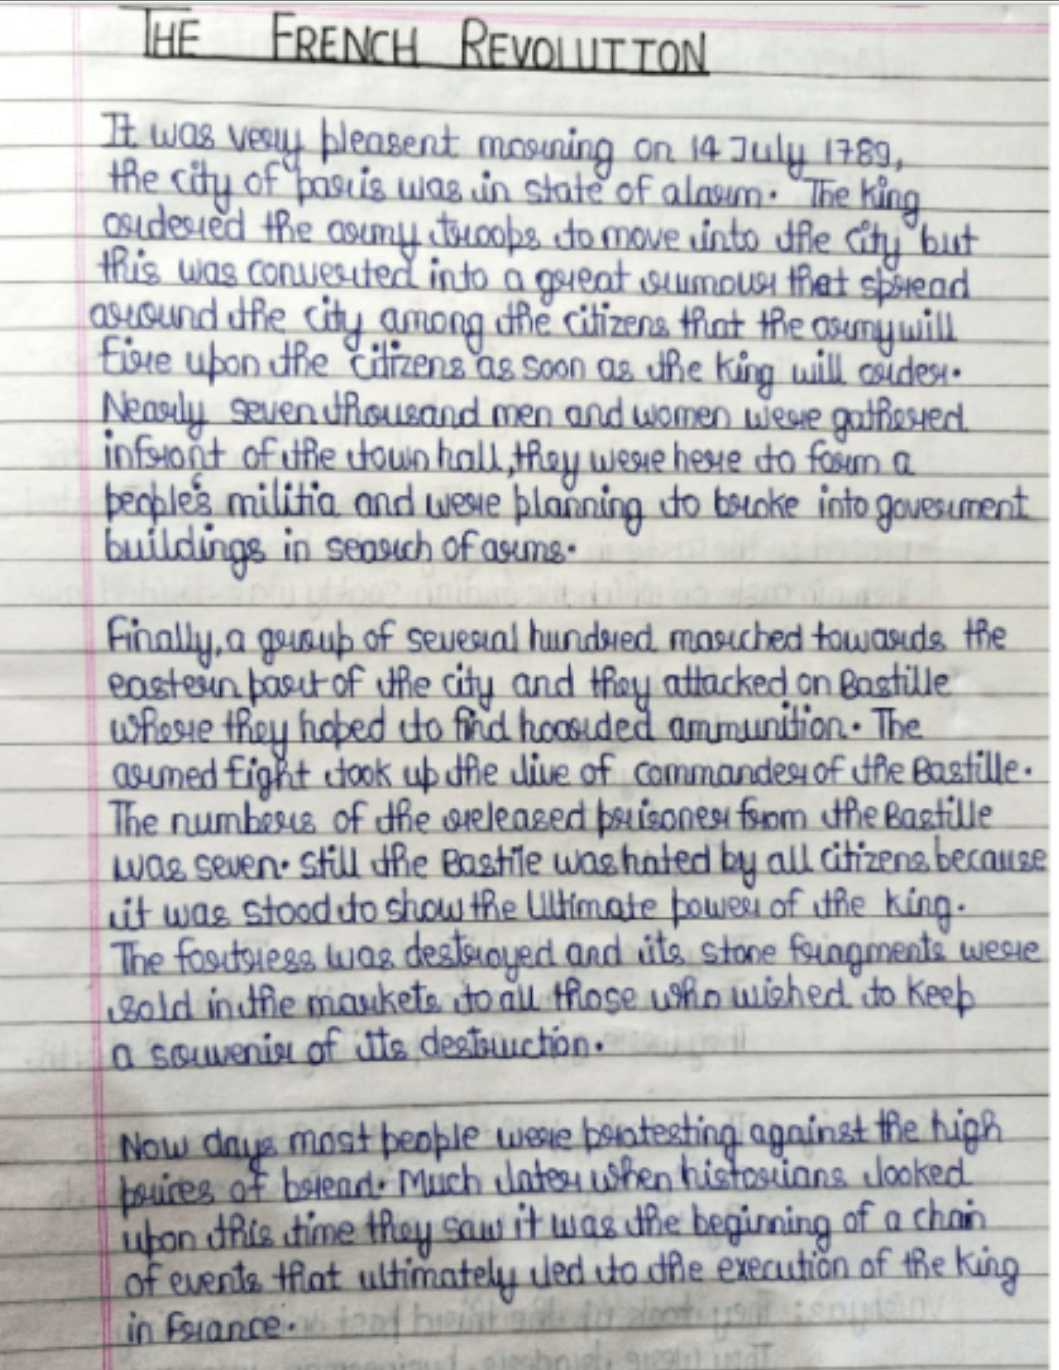 THE FRENCH REVOLUTION
It was very pleasent morning on 14 July 1789,
the city of paris was in state of alarm. The King
ordered the army troops to move into the city but
this was converted into a great rumour that spread
around the city among the citizens that the army will
fire upon the citizens as soon as the King will order.
Nearly seven thousand men and women were gathered
infront of the town hall, they were here to form a
people's militia and were planning to broke into goverment
buildings in search of arms.
Finally, a group of several hundred marched towards the
eastern part of the city and they attacked on Bastille
where they hoped to find hoarded ammunition. The
armed fight took up the live of commander of the Bastille.
The numbers of the released prisoner from the Bastille
was seven. Still the Bastile was hated by all citizens because
it was stood to show the Ultimate power of the king.
The fortress was destroyed and its stone frngments were
sold in the markets to all those who wished to keep
a souvenir of its destruction.
Now days most people were protesting against the high
prices of bread. Much later when historians looked
upon this time they saw it was the beginning of a chan
of events that ultimately led to the execution of the King
in France.